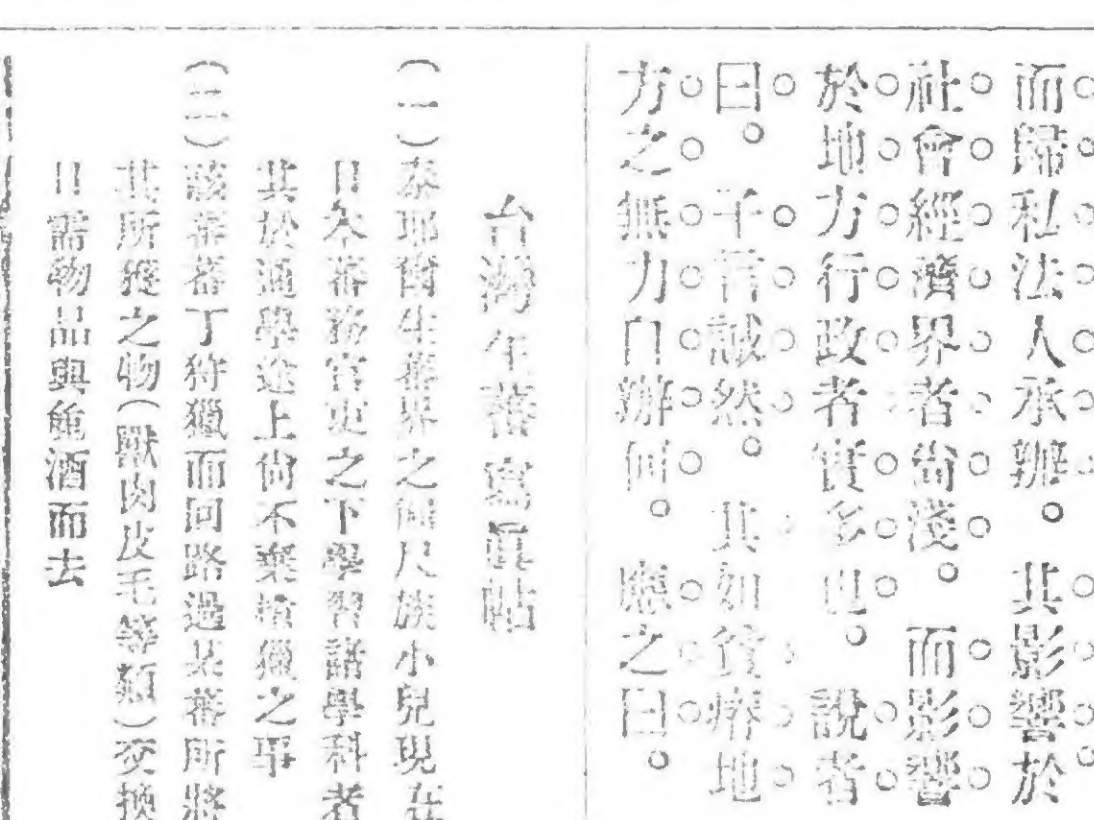 而歸私法人承辦。其影響於
社會經濟界者尙淺。而影響
於地方行政者實多也。說者
曰。子言誠然。其如貧瘠地
方之無力自辦何。應之曰。
台灣生蕃寫眞帖
(一)泰耶爾生蕃界之 族小兒現在
日本蕃務官吏之下學習諸學科者
其於通學途上尙不棄 獵之事
(二)該蕃蕃丁狩獵而回路過某蕃所將
其所獲之物(獸肉皮毛等類)交換
日需物品與 酒而去